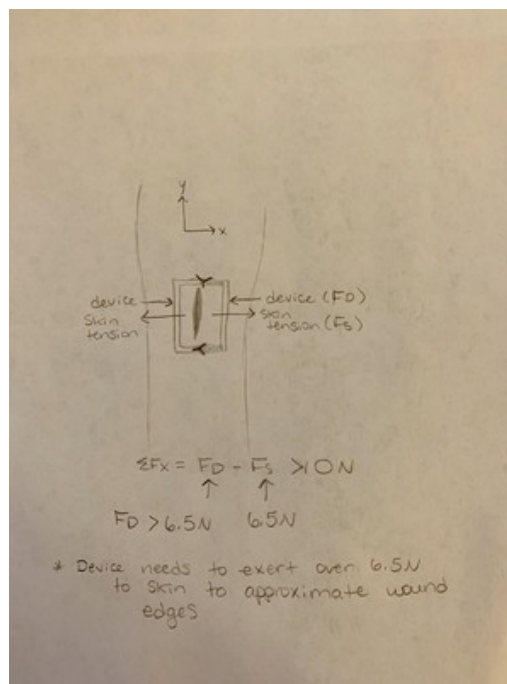 y
x
device
device (FD)
skin
tension
skin
tension (Fs)
ΣFx = FD - Fs > 0 N
FD > 6.5N 6.5N
* Device needs to exert over 6.5N
to skin to approximate wound
edges